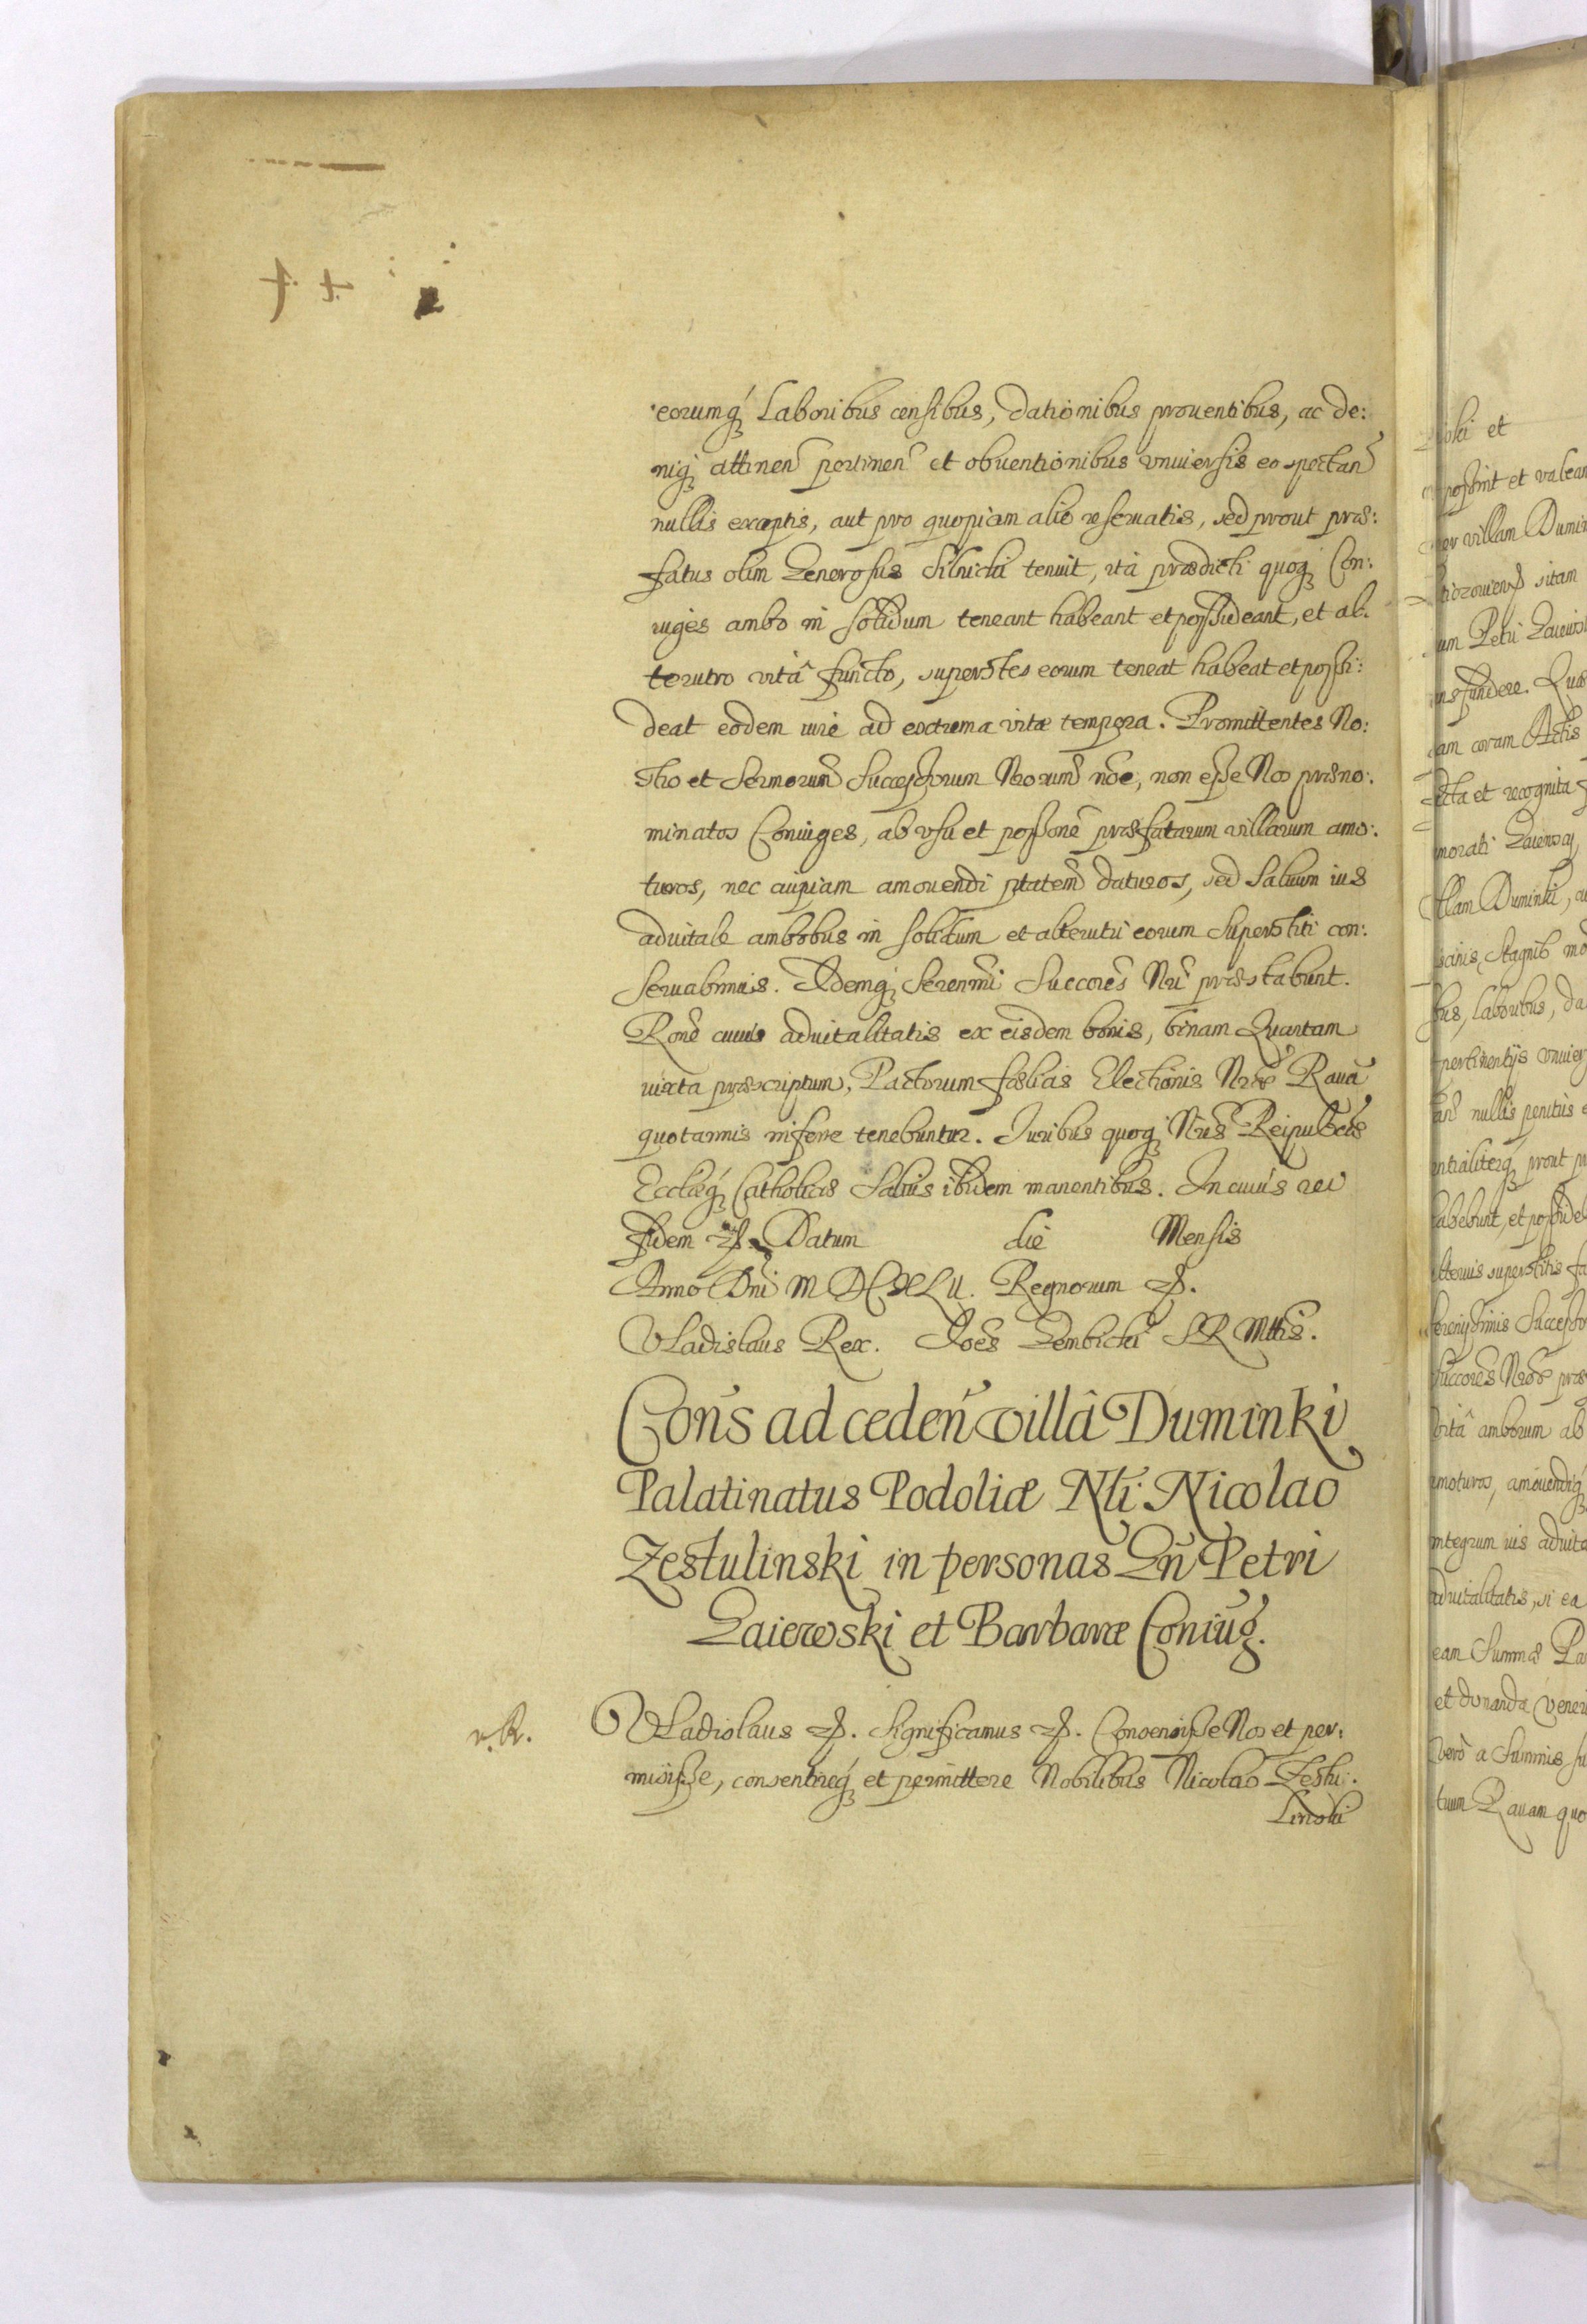 eorumq́ Laboribus censibus, dationibus prouentibus, ac de:
niq́ attinen̄ pertinen̄ et obuentionibus vniuersis eo spectan̄
nullis exceptis, aut pro quopiam alio reseruatis, sed prout præ:
fatus olim Generosus Silnicki tenuit, ita prædicti quoq́ Con:
iuges ambo in solidum teneant habeant et possideant, et al:
terutro vitâ functo, superstes eorum teneat habeat et possi:
deat eodem iure ad extrema vitæ tempora. Promittentes No:
stro et Sermorum̄ Successorum Nrorum̄ nōe, non esse Nos præno:
minatos Coniuges, ab vsu et possone̅ præfatarum villarum amo:
turos, nec cuipiam amouendi ptatem̄ daturos, sed saluum ius
aduitale ambobus in solidum et alterutri eorum superstiti con:
seruabimus. Idemq́ Serenmi̅ Succores̅ Nri̅ præstabunt.
Rone̅ cuius aduitalitatis ex eisdem bonis, binam Quartam
iuxta præscriptum, Pactorum fœlicis Electionis Nræ̅ Rauā
quotannis inferre tenebuntur. Iuribus quoq́ Nris̅ Reipublcæ̅
Ecclæq́ Catholicæ saluis ibidem manentibus. In cuius rei
fidem etc. Datum die Mensis
Anno Dni̅ M DC XL II. Regnorum etc.
Vladislaus Rex. Ioēs Gembicki S R Mttis̅.
Cons̄ ad ceden̄ villâ Duminki
Palatinatus Podoliæ Nli̅ Nicolao
Zestulinski in personas Gn̄ Petri
Gaiewski et Barbaræ Coniūg.
v. R. Vladislaus etc. Significamus etc. Consensisse Nos et per:
misisse, consentireq́ et permittere Nobilibus Nicolao Zestu:
linski
oski et
possint et valean
villam Dumin
sitam
Petri Gaiewsk
nsfundere. Quæ
am coram Actis
cta et recognita
morati Gaiewscy
illam Duminki, cu
scinis, Stagnis, mo
bus, laboribus, da
pertinentijs vniuer
nullis penitus e
ntialiterq́ prout pr
habebunt, et posside
superstitis fa
serenissimis Successo
Succores̅ Nros̅ præ
vitâ amborum ab
amoturos, amouendiq́
integrum ius aduita
aduitalitatis, si ea
eam Summæ Pa
et donanda veneri
vero a Summis su
tuum Rauam quo